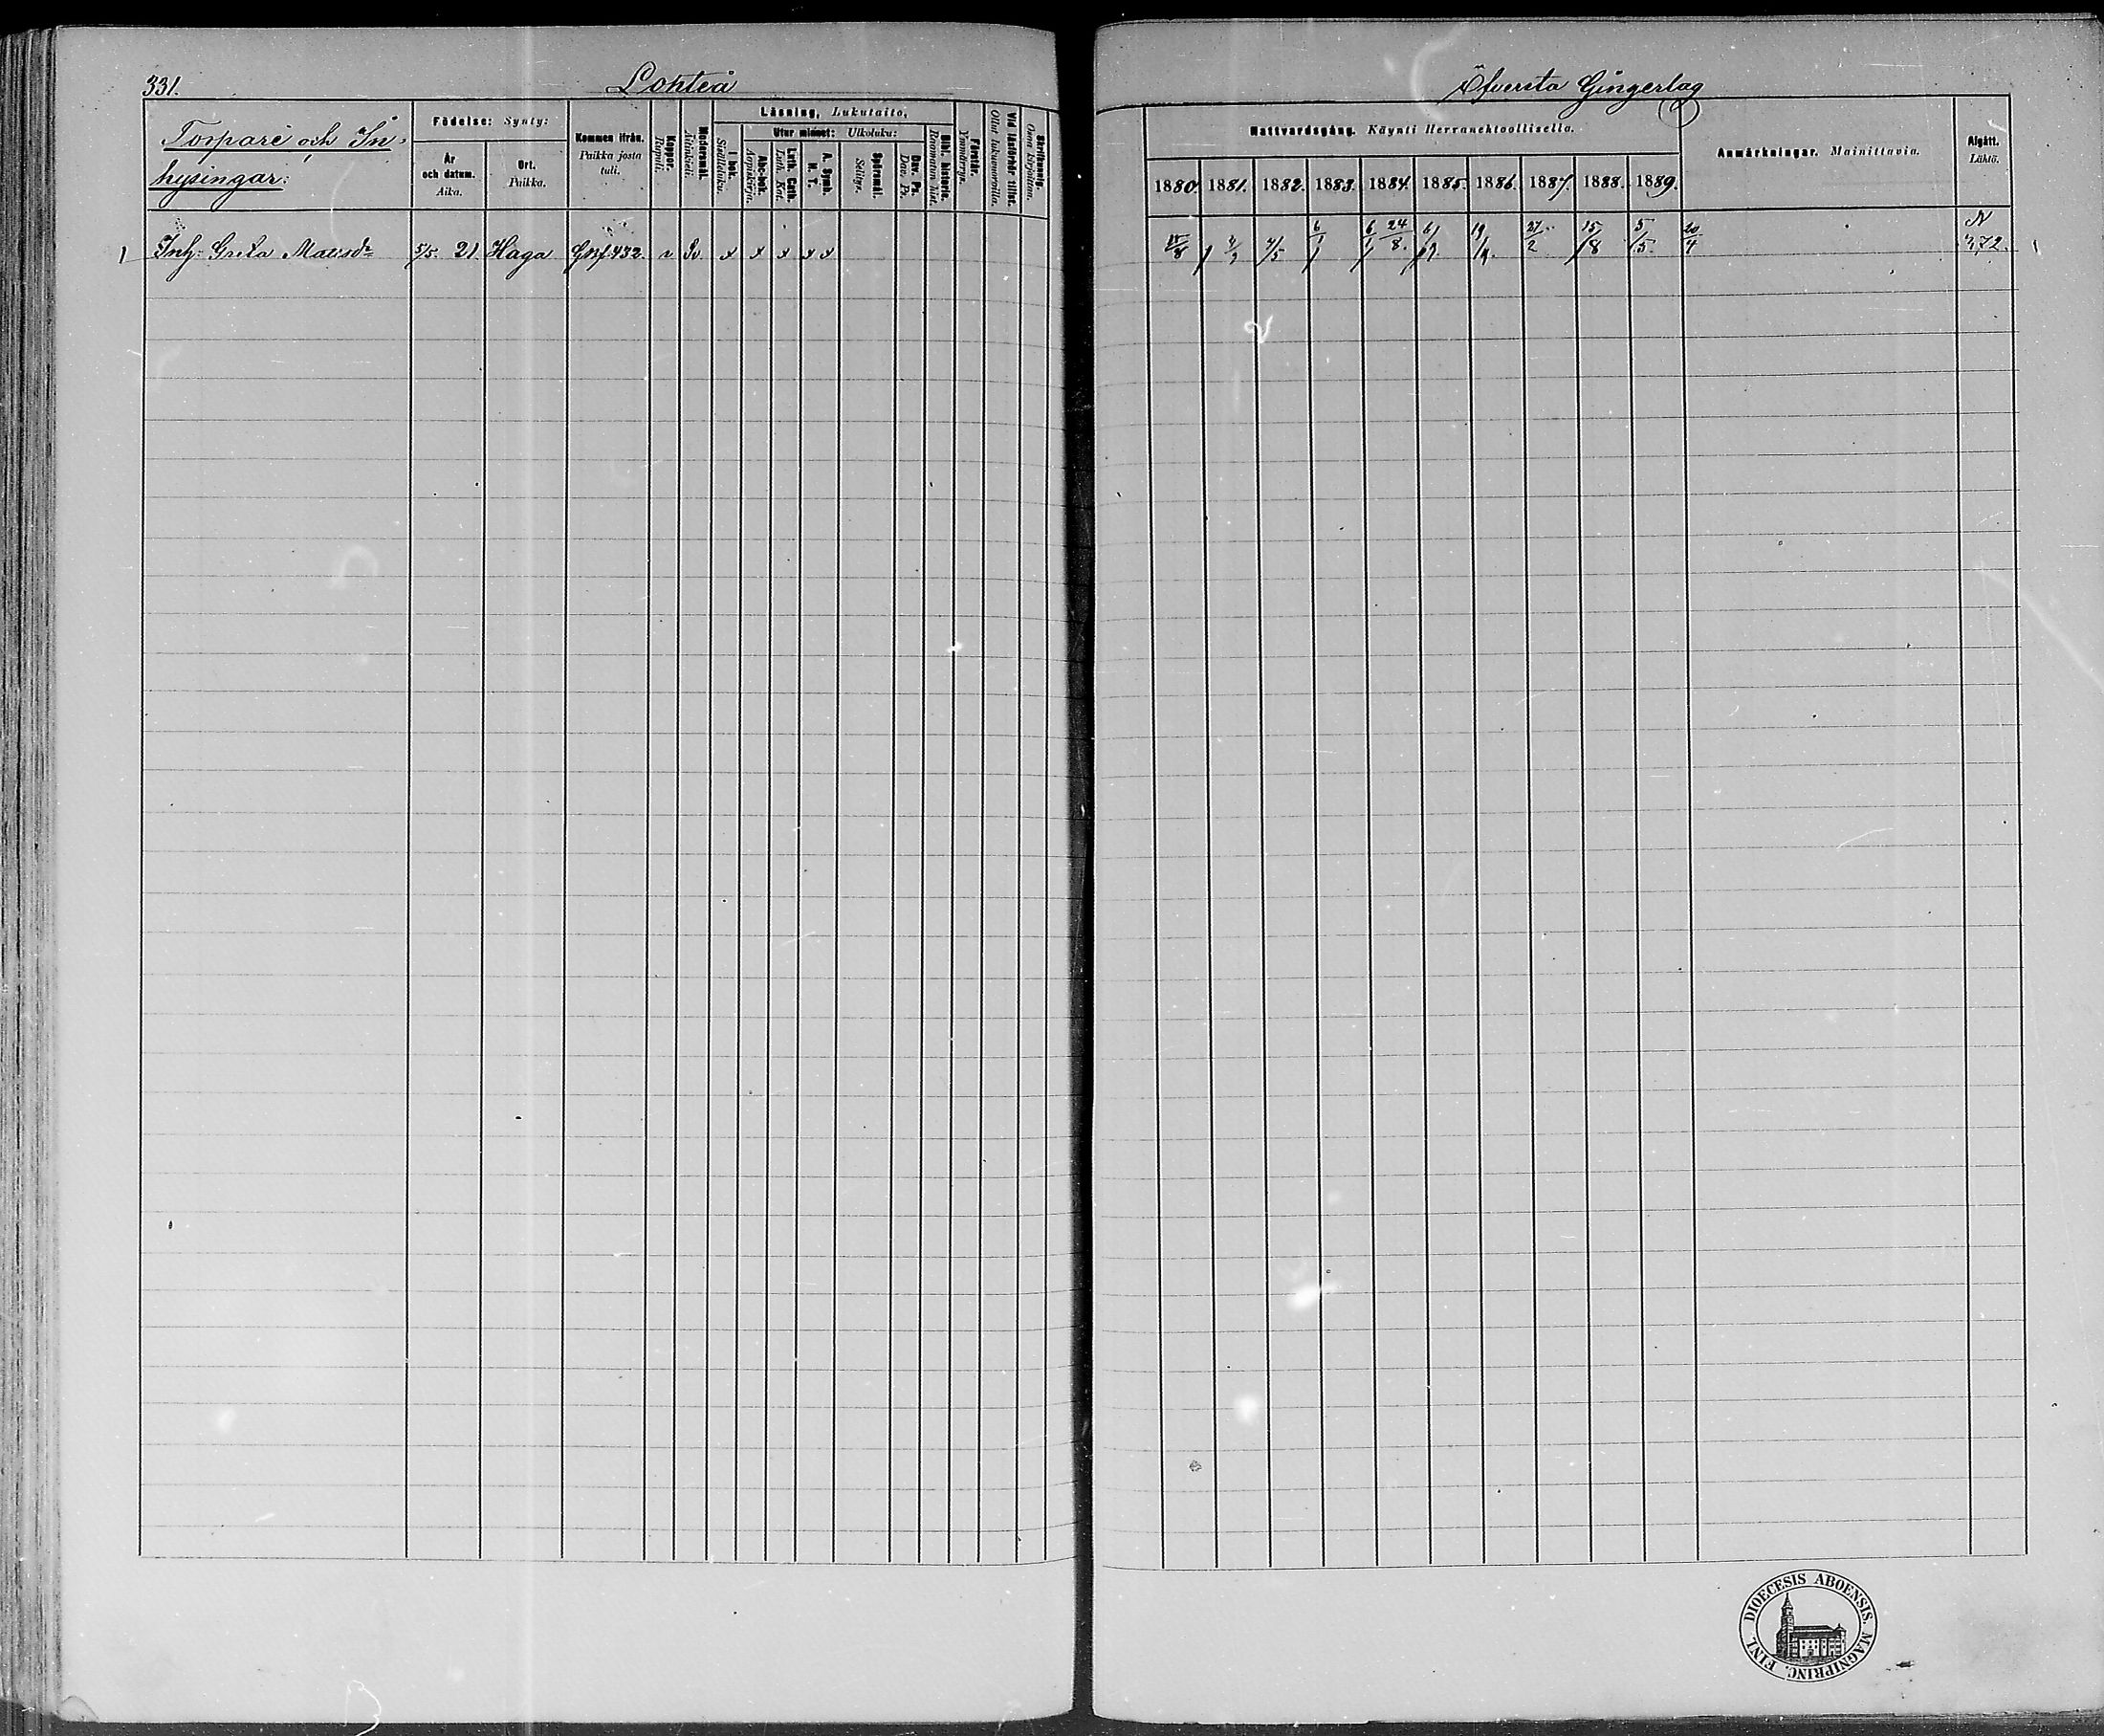 331.
Lohteå
Öfversta Gingerlag
Torpare och In-
hysingar:
Födelse: Synty:
År och datum. Aika.
Ort. Paikka.
Kommen ifrån. Paikka josta tuli.
Koppor. Rupuli.
Modersmål. Äitinkieli.
Läsning, Lukutaito,
I bok. Sisälluku.
Utur minnet: Ulkoluku:
Abc-bok. Aapiskirja.
Luth. Cath. Luth. Kat.
A. Symb. N. T.
Spörsmål. Selitys.
Dav. Ps. Dav. Ps.
Bibl. historie. Raamatun hist.
Förstår. Ymmärrys.
Vid läsförhör tillst. Ollut lukuvuoroilla.
Skrifkunnig. Osaa kirjoittaa.
Nattvardsgång. Käynti Herranehtoollisella.
1880. 1881. 1882. 1883. 1884. 1885. 1886. 1887. 1888. 1889.
Anmärkningar. Mainittavia.
Afgått. Lähtö.
1 Inh: Greta Matsdr 5/5. 21 Haga 432. v Sv. x x x x x
6/1 6/1 24/8. 27/2 15/8 5/5. 20/4
N
DIOECESIS ABOENSIS. MAGNIPRINC. FINL.